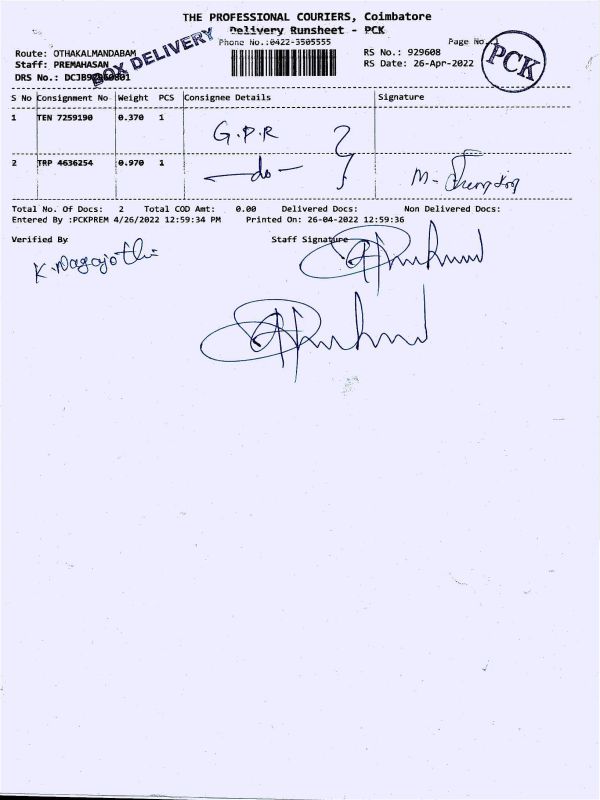 THE PROFESSIONAL COURIERS, Coimbatore
Delivery Runsheet - PCK
Phone No.:0422-3505555
Page No. 1
BOX DELIVERY
PCK
Route: OTHAKALMANDABAM
RS No.: 929608
Staff: PREMAHASAN
RS Date: 26-Apr-2022
DRS No.:
S No Consignment No Weight PCS Consignee Details Signature
1 TEN 7259190 0.370 1 G.P.R
2 TRP 4636254 0.970 1 - do -
Total No. Of Docs: 2 Total COD Amt: 0.00 Delivered Docs: Non Delivered Docs:
Entered By :PCKPREM 4/26/2022 12:59:34 PM Printed On: 26-04-2022 12:59:36
Verified By Staff Signature
K. Nagajothi